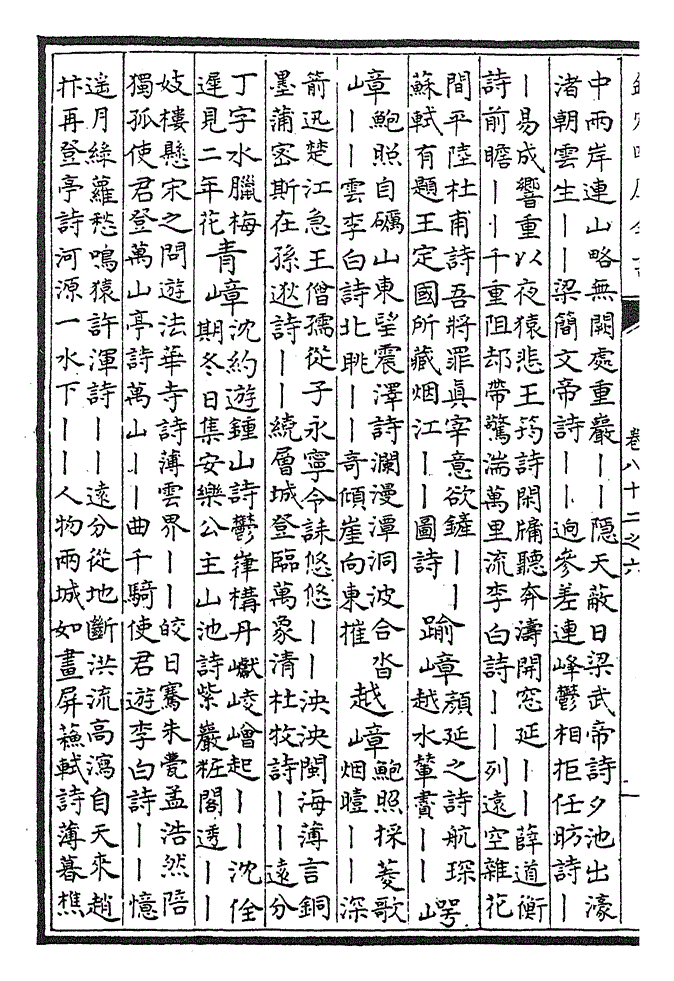 卷八十二之六
一
中兩岸連山略無闕處重巖丨丨隱天蔽日梁武帝詩夕池出濠
渚朝雲生丨丨梁簡文帝詩丨丨逈參差連峰鬱相拒任昉詩丨
丨易成響重以夜猿悲王筠詩閑牗聽奔濤開窓延丨丨薛道衡
詩前瞻丨丨千重阻却帶驚湍萬里流李白詩丨丨列遠空雜花
間平陸杜甫詩吾將罪真宰意欲鏟丨丨
蘇軾有題王定國所藏烟江丨丨圖詩
踰嶂
顔延之詩航琛
越水輦賮丨丨
崿
嶂
鮑照自礪山東望震澤詩瀾漫潭洞波合沓
丨丨雲李白詩北眺丨丨奇傾崖向東摧
越嶂
鮑照採菱歌
烟曀丨丨深
箭迅楚江急王僧孺從子永寧令誄悠悠丨丨泱泱閩海薄言銅
墨蒲密斯在孫逖詩丨丨繞層城登臨萬象清杜牧詩丨丨遠分
丁字水臘梅
遲見二年花
青嶂
沈約遊鍾山詩鬱嵂構丹巘崚嶒起丨丨沈佺
期冬日集安樂公主山池詩紫巖粧閣透丨丨
妓樓懸宋之問遊法華寺詩薄雲界丨丨皎日騫朱甍孟浩然陪
獨孤使君登萬山亭詩萬山丨丨曲千騎使君遊李白詩丨丨憶
遥月綠蘿愁鳴猿許渾詩丨丨遠分從地斷洪流高瀉自天來趙
抃再登亭詩河源一水下丨丨丨人物兩城如畫屏蘇軾詩薄暮樵